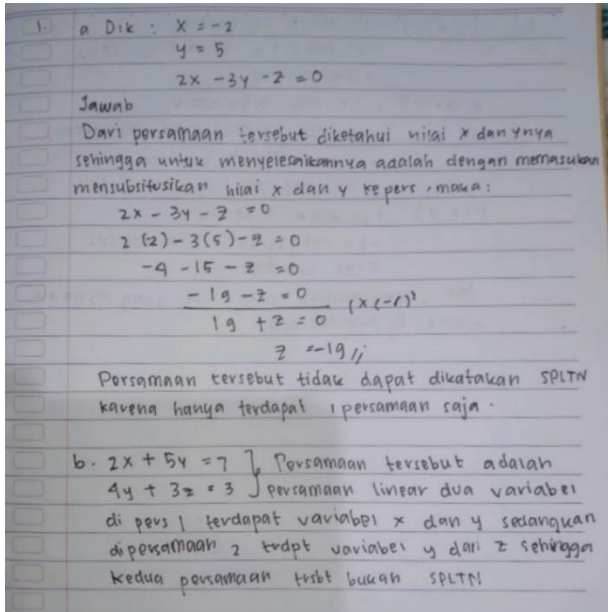 1. a Dik : x = -2
y = 5
2x - 3y - z = 0
Jawab
Dari persamaan tersebut diketahui nilai x dan ynya
sehingga untuk menyelesaikannya adalah dengan memasukan
mensubsitusikan nilai x dan y ke pers, maka :
2x - 3y - z = 0
2 (-2) - 3(5) - z = 0
-4 - 15 - z = 0
- 19 - z = 0 (x (-1))
19 + z = 0
z = -19 //
Persamaan tersebut tidak dapat dikatakan SPLTN
karena hanya terdapat 1 persamaan saja.
b. 2x + 5y = 7 } Persamaan tersebut adalah
4y + 3z = 3 } persamaan linear dua variabel
di pers 1 terdapat variabel x dan y sedangkan
di persamaan 2 trdpt variabel y dan z sehingga
kedua persamaan trsbt bukan SPLTN